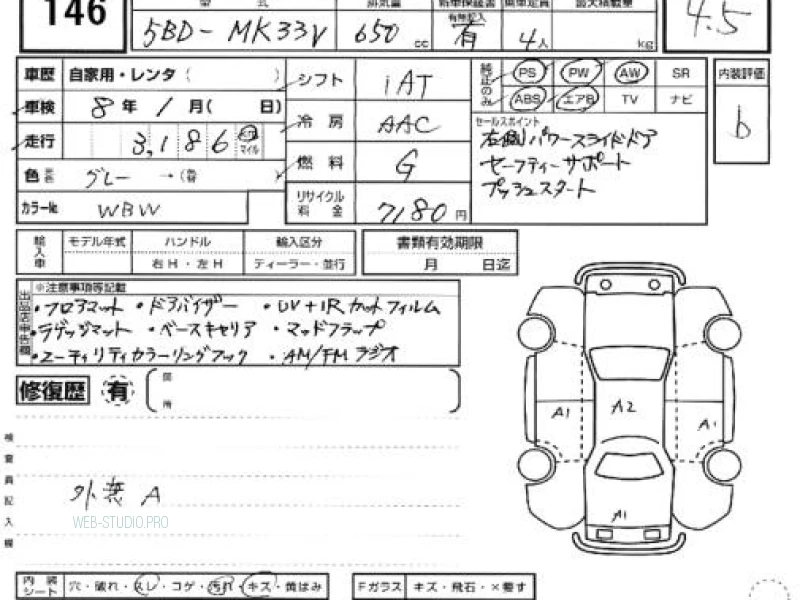 146
型 式 排気量 乗車定員 最大積載量
5BD- MK33V 650 cc 有無記入 有 4人 kg 4.5
車歴 自家用・レンタ ( ) シフト iAT 純正のみ PS PW AW SR 内装評価
車検 8年 1月( 日) 冷房 AAC ABS エアB TV ナビ b
走行 3,186 マイル セールスポイント
右側パワースライドドア
色 グレー →( ) 燃料 G セーフティーサポート
カラー№ WBW リサイクル料金 7180円 プッシュスタート
輸入車 モデル年式 ハンドル 輸入区分 書類有効期限
右H・左H ディーラー・並行 月 日迄
出品店申告欄 ※注意事項等記載
・フロアマット ・ドアバイザー ・UV+IRカットフィルム
・ラゲッジマット ・ベースキャリア ・マッドフラップ
・ユーティリティカラーリングフック ・AM/FMラジオ
修復歴 有 箇所
A1 A2 A1
検査員記入欄
外装 A
A1
WEB-STUDIO.PRO
内装シート 穴・破れ・スレ・コゲ・汚れ・キズ・黄ばみ Fガラス キズ・飛石・×要す